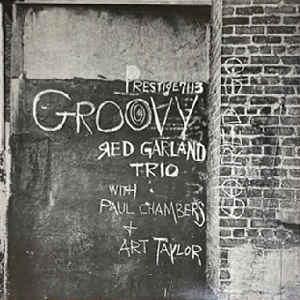 PRESTIGE 7113
GROOVY
RED GARLAND
TRIO
WITH
PAUL CHAMBERS
+
ART TAYLOR